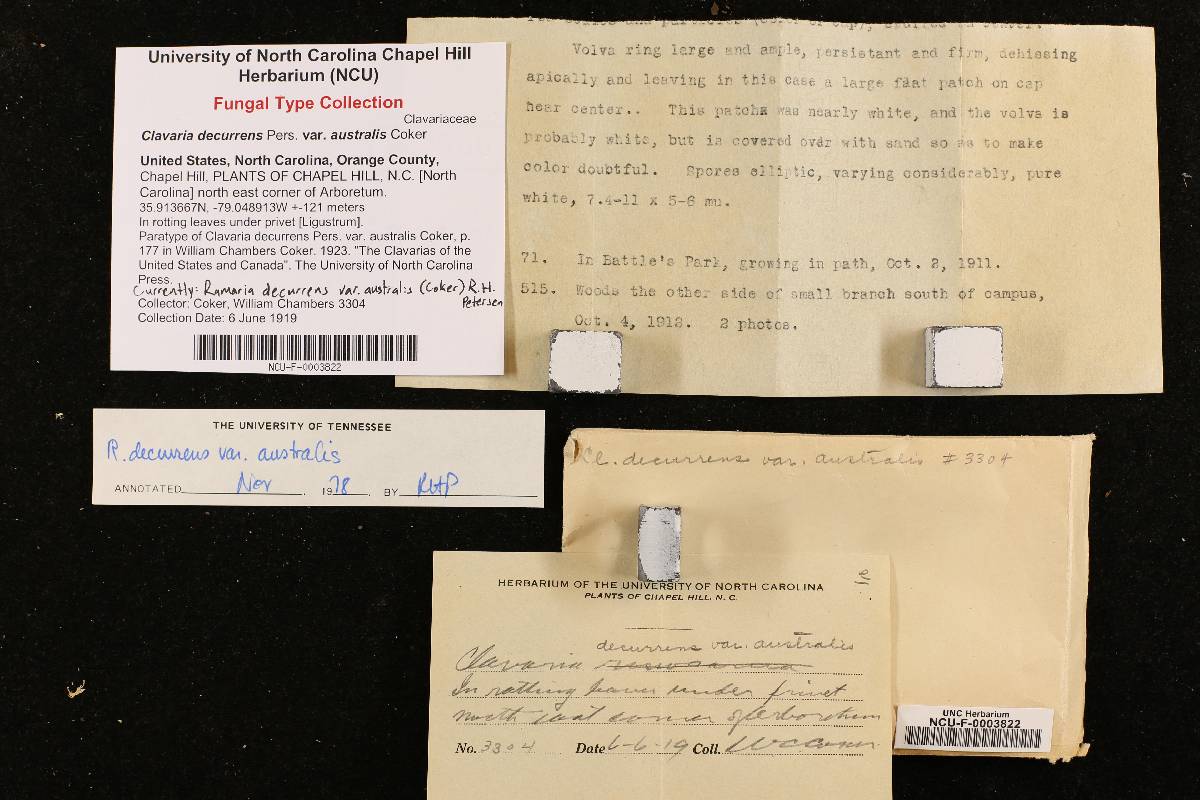 University of North Carolina Chapel Hill
Herbarium (NCU)
Fungal Type Collection
Clavariaceae
Clavaria decurrens Pers. var. australis Coker
United States, North Carolina, Orange County,
Chapel Hill, PLANTS OF CHAPEL HILL, N.C. [North
Carolina] north east corner of Arboretum.
35.913667N, -79.048913W +-121 meters
In rotting leaves under privet [Ligustrum].
Paratype of Clavaria decurrens Pers. var. australis Coker, p.
177 in William Chambers Coker. 1923. "The Clavarias of the
United States and Canada". The University of North Carolina
Press.
Currently: Ramaria decurrens var. australis (Coker) R.H.
Petersen
Collector: Coker, William Chambers 3304
Collection Date: 6 June 1919
NCU-F-0003822
Volva ring large and ample, persistant and firm, dehissing
apically and leaving in this case a large flat patch on cap
near center.. This patchs was nearly white, and the volva is
probably white, but is covered over with sand so as to make
color doubtful. Spores elliptic, varying considerably, pure
white, 7.4-11 x 5-6 mu.
71. In Battle's Park, growing in path, Oct. 2, 1911.
515. Woods the other side of small branch south of campus,
Oct. 4, 1912. 2 photos.
THE UNIVERSITY OF TENNESSEE
R. decurrens var. australis
ANNOTATED Nov 1978 BY RHP
Cl. decurrens var. australis # 3304
HERBARIUM OF THE UNIVERSITY OF NORTH CAROLINA
PLANTS OF CHAPEL HILL, N. C.
decurrens var. australis
Clavaria
In rotting leaves under privet
north east corner of arboretum
No. 3304 Date 6-6-19 Coll. W C Coker
UNC Herbarium
NCU-F-0003822